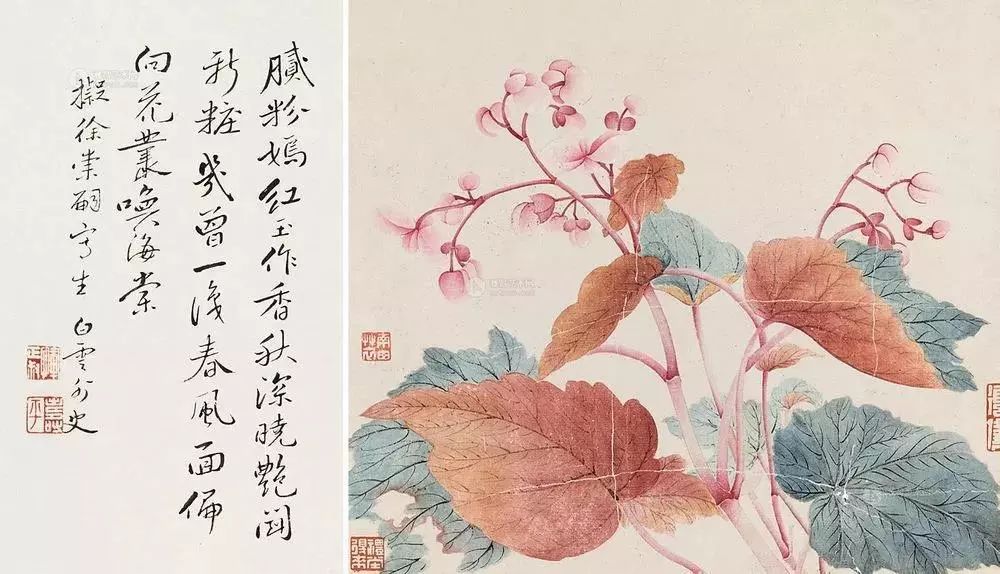 膩粉嫣紅玉作香秋深曉艷鬪
新粧幾曾一識春風面偏
向花叢喚海棠
擬徐崇嗣寫生 白雲外史